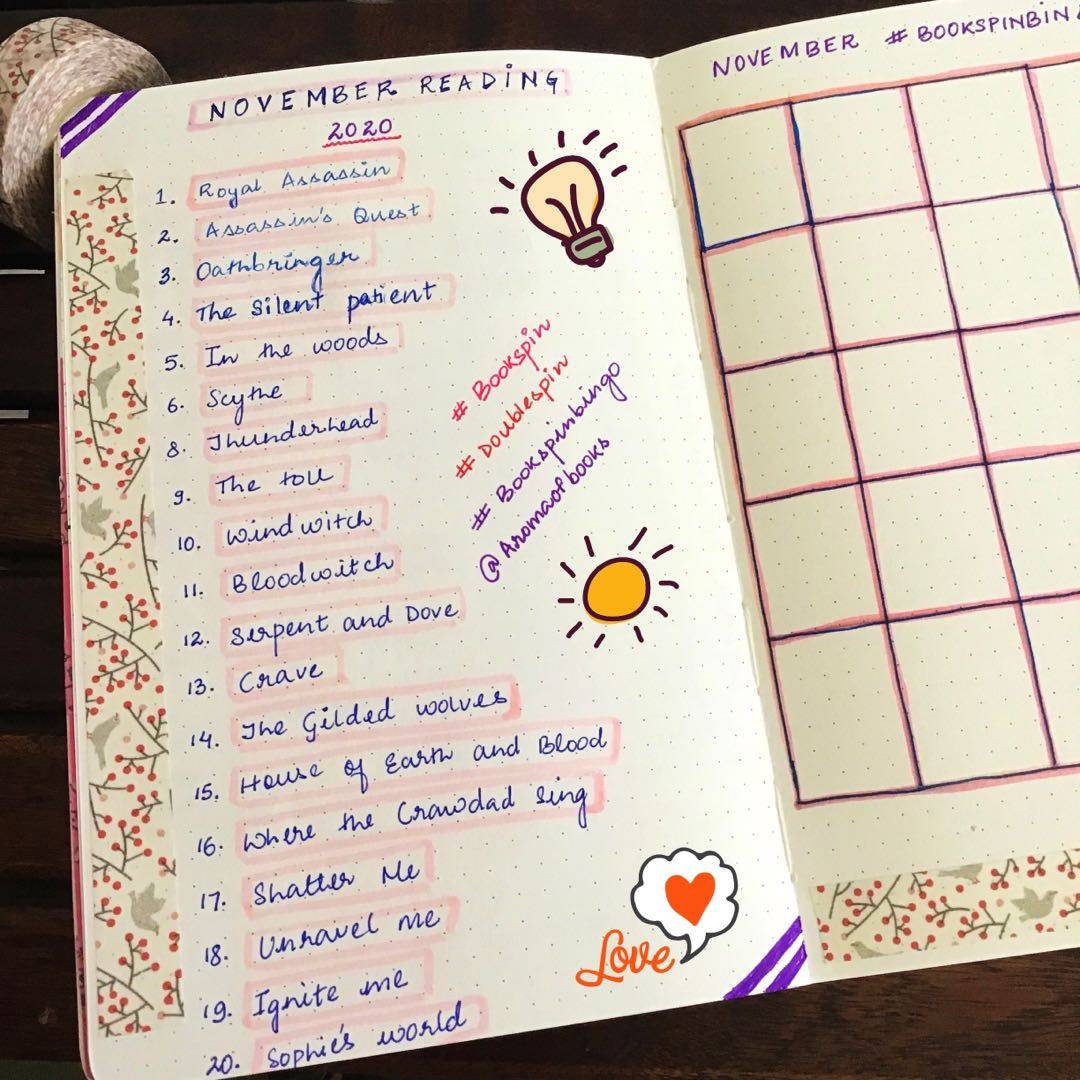 NOVEMBER READING
2020
1. Royal Assassin
2. Assassin's Quest
3. Oathbringer
4. The Silent patient
5. In the woods
6. Scythe
8. Thunderhead
9. The toll
10. Windwitch
11. Bloodwitch
12. Serpent and Dove
13. Crave
14. The Gilded wolves
15. House of Earth and Blood
16. Where the Crawdad Sing
17. Shatter Me
18. Unravel me
19. Ignite me
20. Sophie's world
# Bookspin
# Doublespin
# Bookspinbingo
@Aromaofbooks
Love
NOVEMBER # BOOKSPINBIN